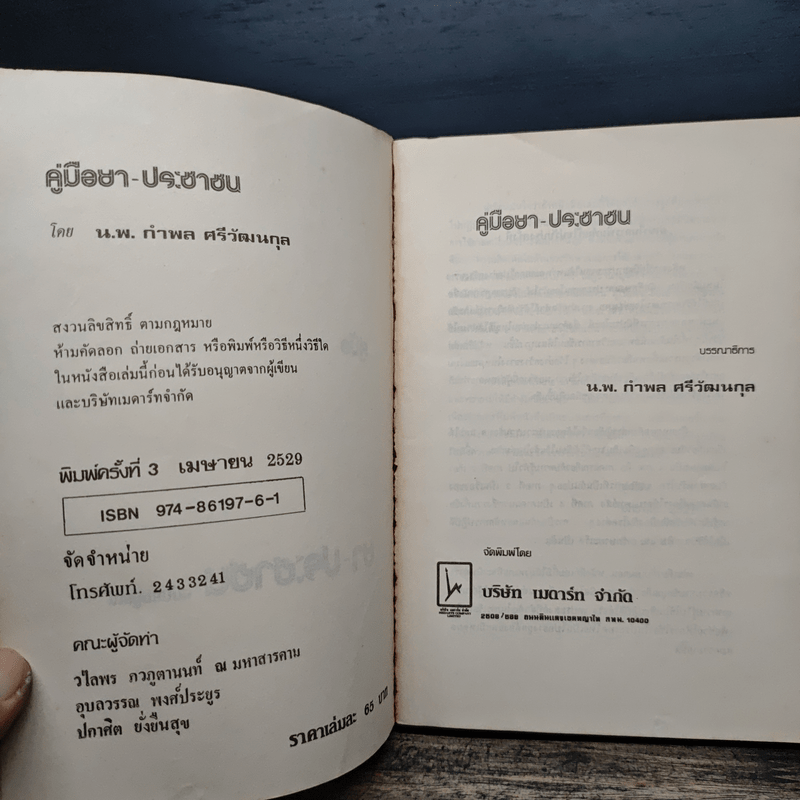 คู่มือยา-ประชาชน
โดย น.พ. กำพล ศรีวัฒนกุล
สงวนลิขสิทธิ์ ตามกฎหมาย
ห้ามคัดลอก ถ่ายเอกสาร หรือพิมพ์หรือวิธีหนึ่งวิธีใด
ในหนังสือเล่มนี้ก่อนได้รับอนุญาตจากผู้เขียน
และบริษัทเมดาร์ทจำกัด
พิมพ์ครั้งที่ 3 เมษายน 2529
ISBN 974-86197-6-1
จัดจำหน่าย
โทรศัพท์. 2433241
คณะผู้จัดทำ
วไลพร ภวภูตานนท์ ณ มหาสารคาม
อุบลวรรณ พงศ์ประยูร
ปกาศิต ยั่งยืนสุข
ราคาเล่มละ 65 บาท
คู่มือยา-ประชาชน
บรรณาธิการ
น.พ. กำพล ศรีวัฒนกุล
จัดพิมพ์โดย
บริษัท เมดาร์ท จำกัด
กทม. 10400